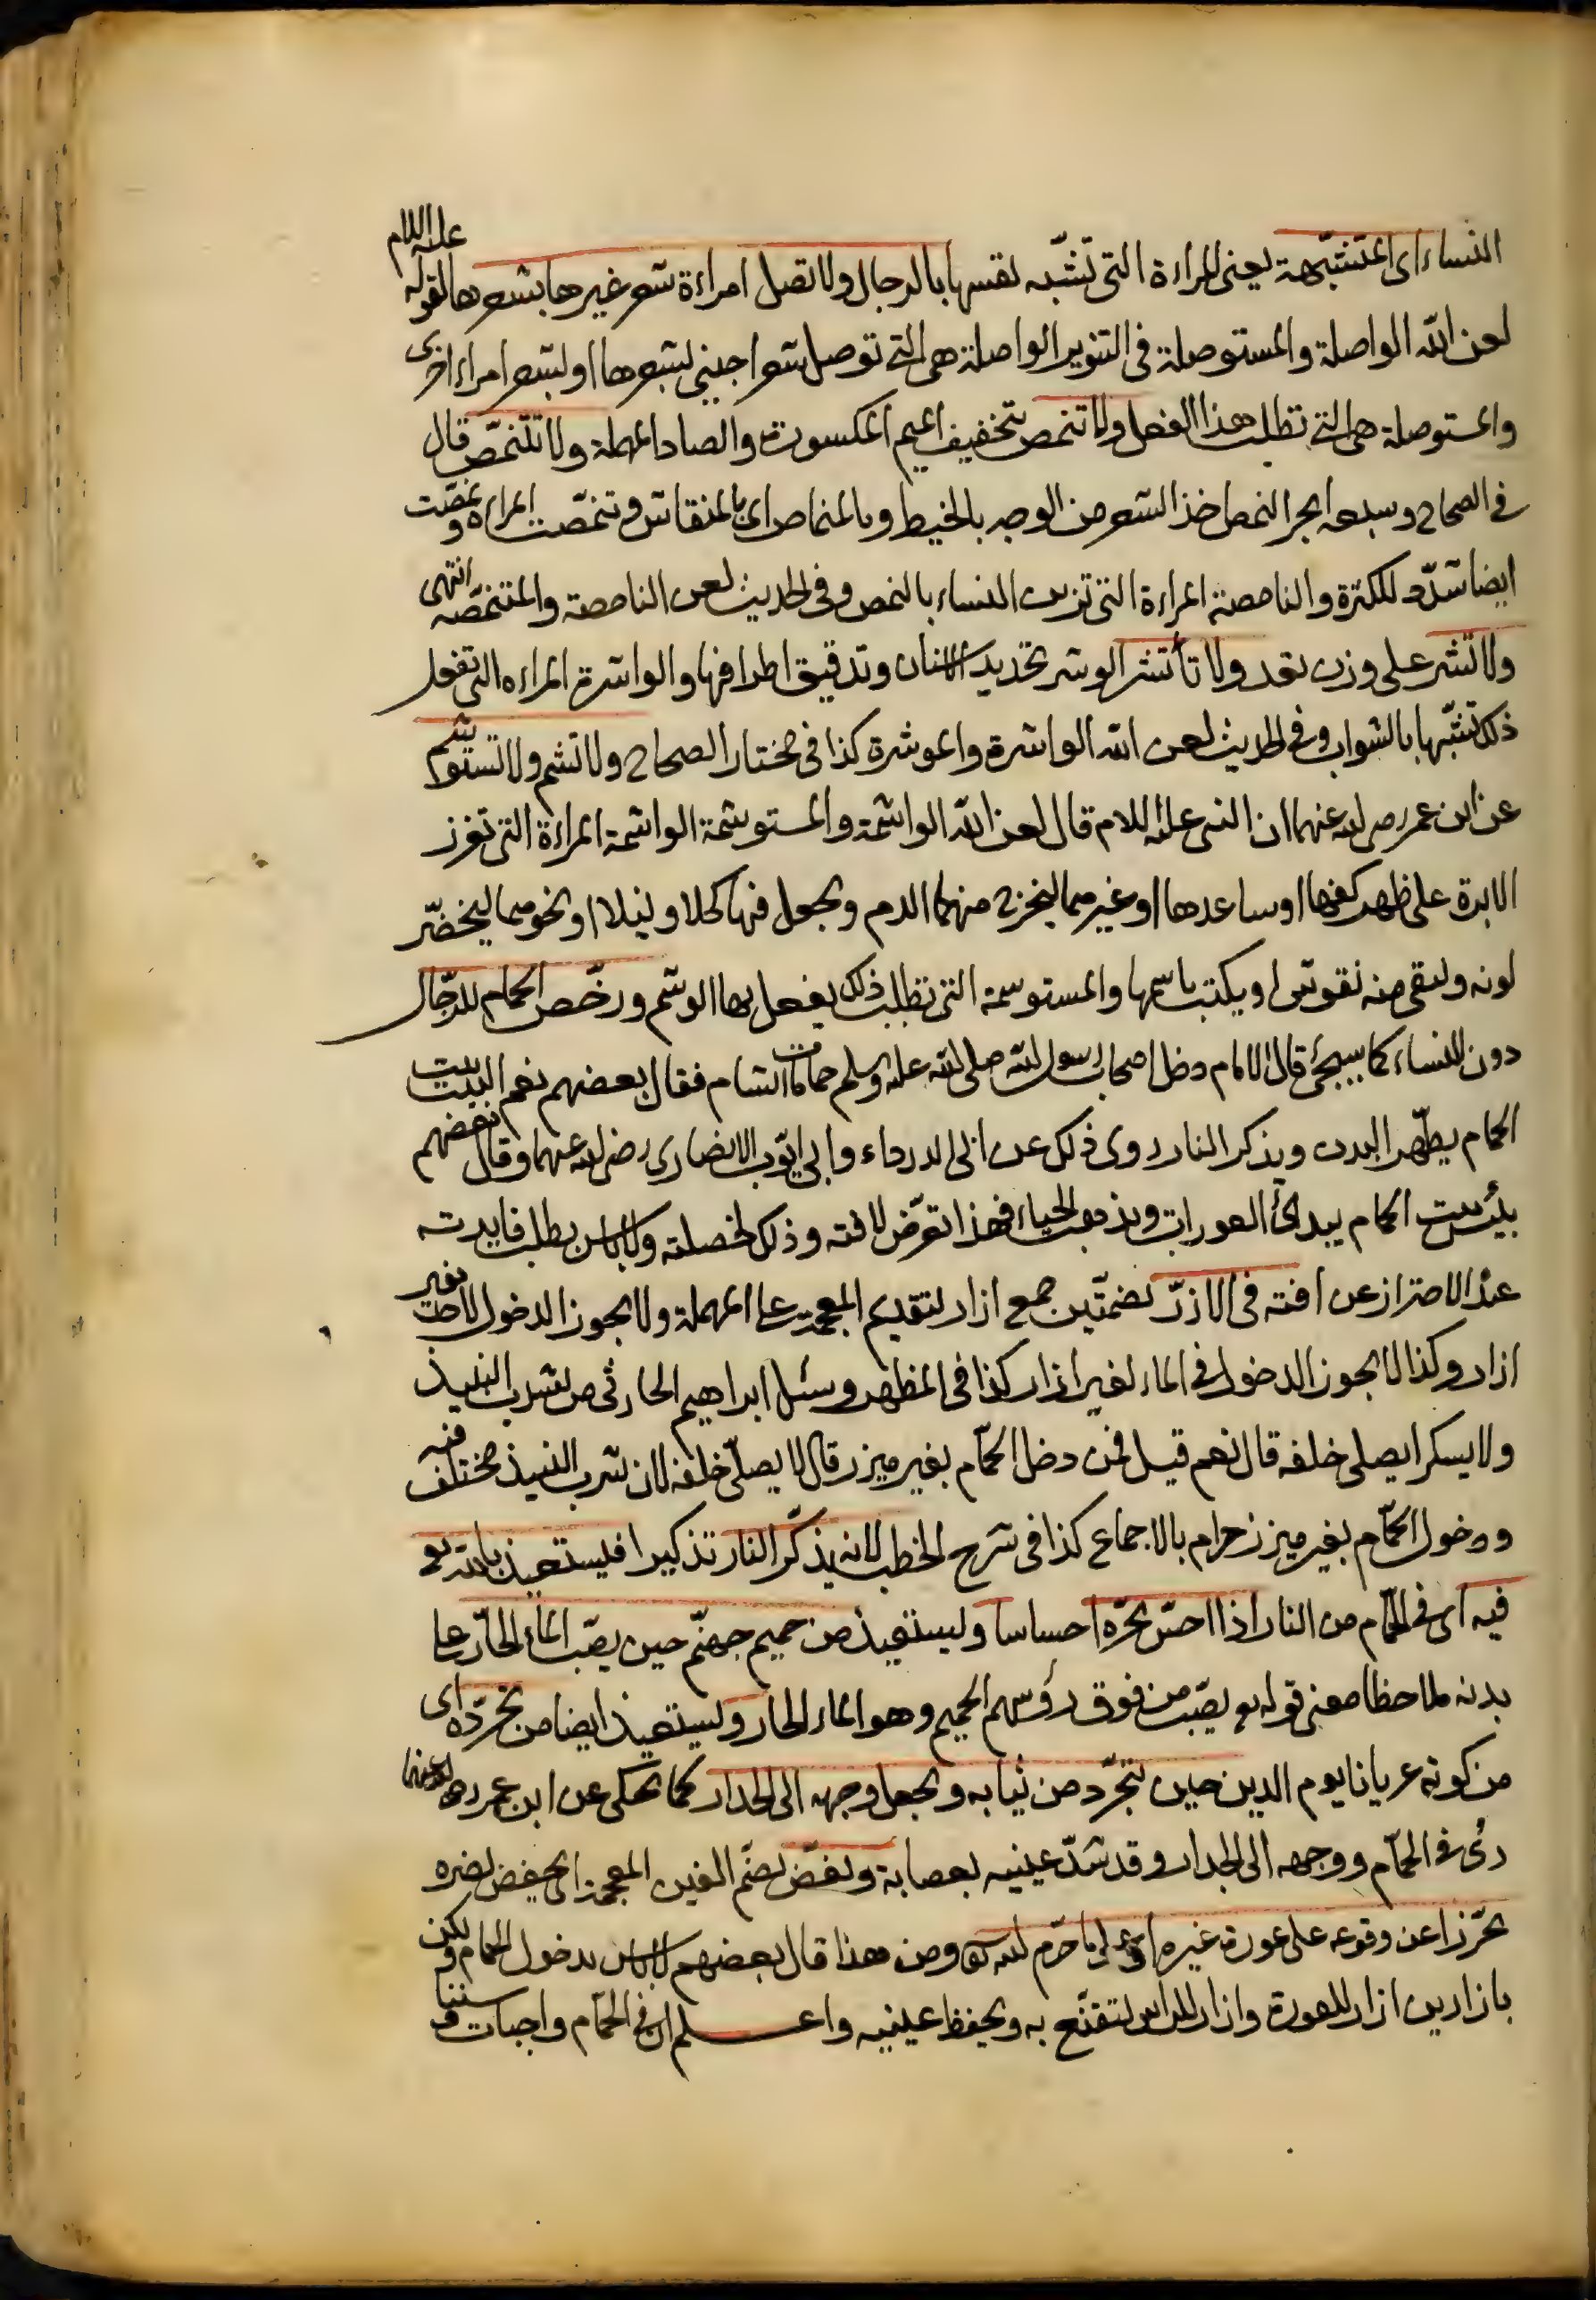 النساء اى المتشبّهة يعنى المراءة التى تشبّه نفسها بالرجال ولا تصل امراءة شعر غيرها بشعرها لقوله عليه السلام
لعن الله الواصلة والمستوصلة فى التنوير الواصلة هى التى توصل شعر اجنبى بشعرها او بشعر امراء اخرى
والمستوصلة هى التى تطلب هذا الفعل ولا تنمص بتخفيف الميم المكسورة والصاد المهملة ولا تتنمّص قال
فى الصحاح وسبعه ابحر النمص اخذ الشعر من الوجه بالخيط وبالمنماص اى بالمنقاش وتنمّصت المراءه ونمصّت
ايضا شدّد للكثرة والنامصة المراءة التى تزين النساء بالنمص وفى الحديث لعن النامصة والمتنمّصه انتهى
ولا تشر على وزن تعد ولا تأتشر الوشر تحديد الاسنان وتدقيق اطرافها والواشرة المراءه التى تفعل
ذلك تشبّها بالشواب وفى الحديث لعن الله الواشرة والموشرة كذا فى مختار الصحاح ولا تشم ولا تستوشم
عن ابن عمر رضى الله عنهما ان النبى عليه السلام قال لعن الله الواشمة والمستوشمة الواشمة المراءة التى تغرز
الابرة على ظهر كفها او ساعدها او غيرهما ليخرج منهما الدم ويجعل فيها كحلا او نيلا او نحوهما ليخضّر
لونه ويبقى منه نقوش او يكتب باسمها والمستوسمة التى تطلب ذلك يفعل بها الوشم ورخّص الحمام للرجال
دون النساء كما سيجئ قال الامام دخل اصحاب رسول الله صلى الله عليه وسلم حمامات الشام فقال بعضهم نعم البيت بيت
الحمام يطهّر البدن ويذكر النار روى ذلك عن ابى الدرداء وابى ايّوب الانصارى رضى الله عنهما وقال بعضهم
بئس بيت الحمام يبدئ العورات ويذهب الحياء فهذا تعرّض لافته وذلك لخصلته ولا باس بطلب فايدته
عند الاحتراز عن افته فى الازرّ بضمتّين جمع ازار بتقديم المعجمة على المهملة ولا يجوز الدخول لاحد بغير
ازار وكذا لا يجوز الدخول فى الماء بغير ازار كذا فى المظهر وسئل ابراهيم الحارثى من يشرب النبيذ
ولا يسكر ايصلى خلفه قال نعم قيل فمن دخل الحمّام بغير ميزر قال لا يصلّى خلفه لان شرب النبيذ مختلف فيه
ودخول الحمّام بغير ميزر حرام بالاجماع كذا فى شرح الخطب لانه يذكّر النار تذكيرا فيستعيذ بالله تع
فيه اى فى الحمّام من النار اذا احسّ بحرّه احساسا وليستعيذ من حميم جهنّم حين يصّب الماء الحارّ على
بدنه ملاحظا معنى قوله تع يصّب من فوق رؤسهم الحميم وهو الماء الحار وليستعيذ ايضا من تجرّده اى
من كونه عريانا يوم الدين حين يتجرّد من ثيابه ويجعل وجهه الى الجدار كما يحكى عن ابن عمر رضى الله عنهما
رئى فى الحمّام ووجهه الى الجدار وقد شدّ عينيه بعصابة ويغضّ بضّم الغين المعجمة اى يخفض بصره
تحرّزا عن وقوعه على عورة غيره او على ما حرّم الله تعالى ومن هذا قال بعضهم لا باس بدخول الحمام ولكن
بازارين ازار للعورة وازار للراس يتقنّع به ويحفظ عينيه واعلم ان فى الحمّام واجبات وسننا